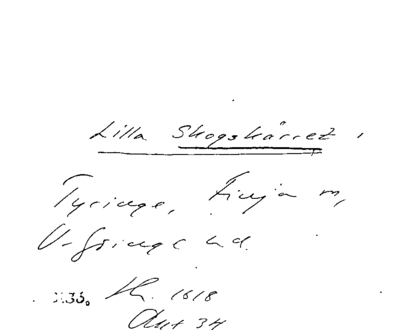 Lilla Skogskärret,
Tyringe, Finja sn,
V-Göinge hd.
XI33. Kh. 1618
Ant 34